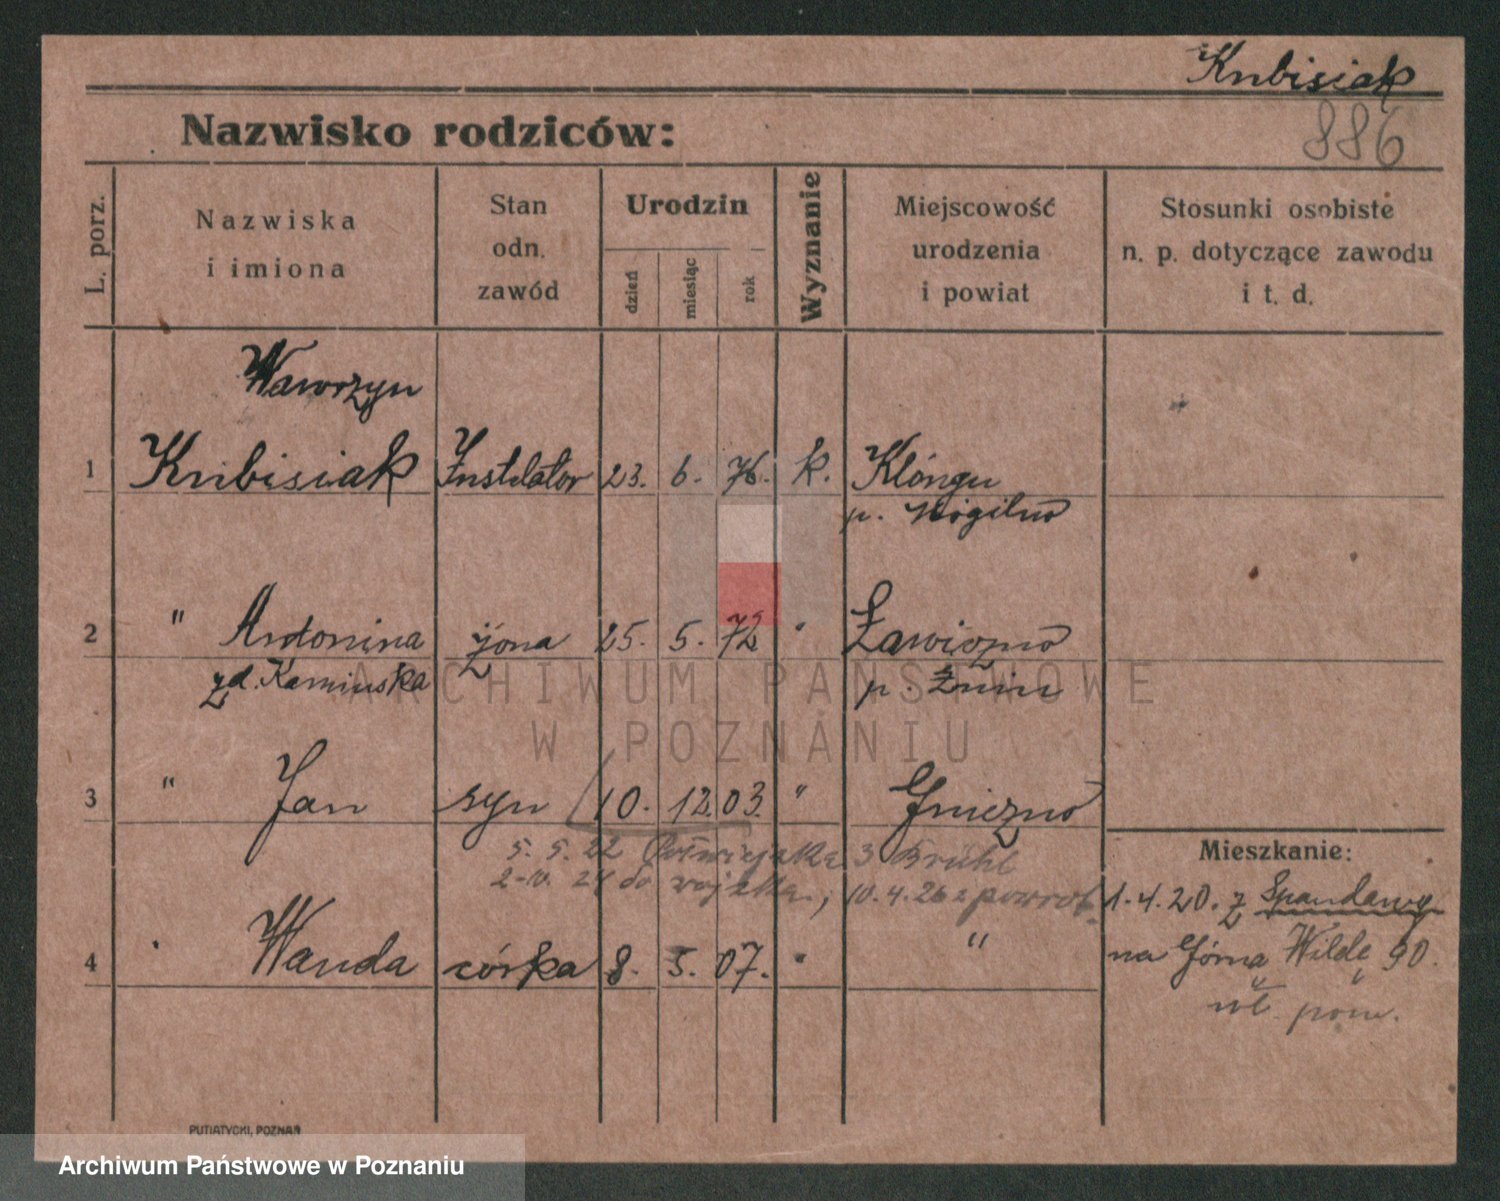 Kubisiak
886
Nazwisko rodziców:
L. porz.
Nazwiska
i imiona
Stan
odn.
zawód
Urodzin
dzień
miesiąc
rok
Wyznanie
Miejscowość
urodzenia
i powiat
Stosunki osobiste
n. p. dotyczące zawodu
i t. d.
Wawrzyn
1 Kubisiak Instelator 23. 6. 76. k. Klóngu
p. Mogilno
2 " Antonina żona 25. 5. 72 " Ławiczno
zd. Kamiuska p. Żnin
ARCHIWUM PAŃSTWOWE
W POZNANIU
3 " Jan syn 10. 12. 03. " Gniezno
5. 5. 22 3 Brühl
2-10. 24 do wojska, 10.4.26 z powrot.
4 " Wanda córka 8. 5. 07. " "
Mieszkanie:
1.4.20. z Spandawy
na Górna Wildę 90.
wł. pom.
PUTIATYCKI, POZNAŃ
Archiwum Państwowe w Poznaniu